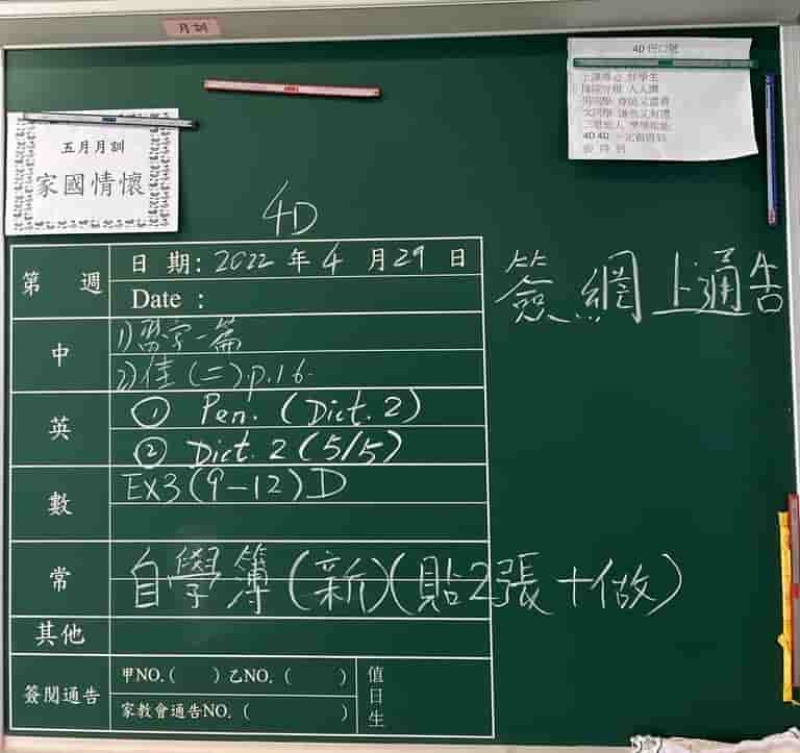 月訓
4D 班口號
五月月訓
家國情懷
4D
第 週
日 期: 2022 年 4 月 29 日
Date :
簽網上通告
中
1) 習字一篇
2) 佳(二) p.16.
英
① Pen. (Dict. 2)
② Dict. 2 (5/5)
數
EX3 (9-12) D
常
自學簿(新)(貼2張+做)
其他
簽閱通告
甲NO. ( ) 乙NO. ( )
家教會通告NO. ( )
值日生